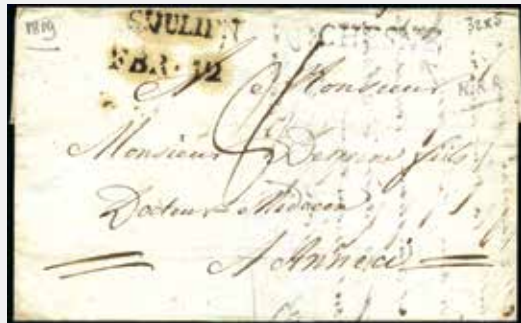 1819
SᵀJULIEN
FBR. 12
CHESNE
32x5
A Monsieur
RRR
Monsieur Despine fils
Docteur Médecin
A Anneci